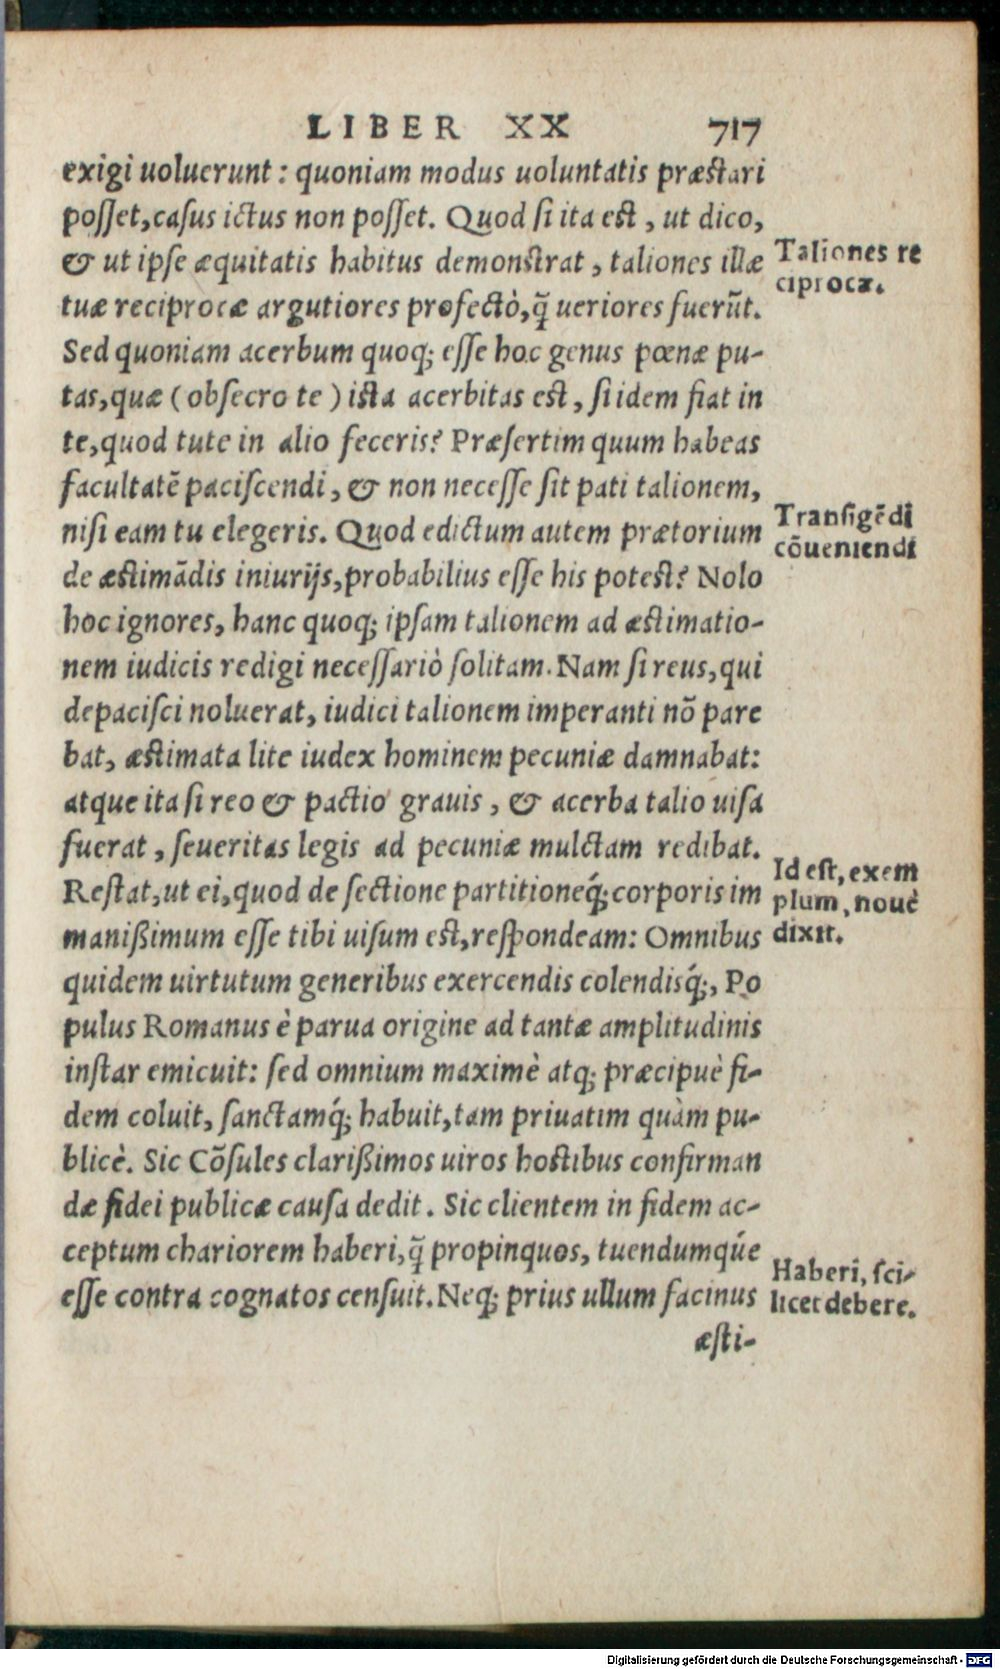 LIBER XX 717
exigi uoluerunt: quoniam modus uoluntatis præstari
posset, casus ictus non posset. Quod si ita est, ut dico,
& ut ipse æquitatis habitus demonstrat, taliones illæ
tuæ reciprocæ argutiores profectò, q̃ ueriores fuerũt.
Sed quoniam acerbum quoq; esse hoc genus pœnæ pu-
tas, quæ (obsecro te) ista acerbitas est, si idem fiat in
te, quod tute in alio feceris? Præsertim quum habeas
facultatẽ paciscendi, & non necesse sit pati talionem,
nisi eam tu elegeris. Quod edictum autem prætorium
de æstimãdis iniurijs, probabilius esse his potest? Nolo
hoc ignores, hanc quoq; ipsam talionem ad æstimatio-
nem iudicis redigi necessariò solitam. Nam si reus, qui
depacisci noluerat, iudici talionem imperanti nõ pare
bat, æstimata lite iudex hominem pecuniæ damnabat:
atque ita si reo & pactio grauis, & acerba talio uisa
fuerat, seueritas legis ad pecuniæ mulctam redibat.
Restat, ut ei, quod de sectione partitioneq́; corporis im
manißimum esse tibi uisum est, respondeam: Omnibus
quidem uirtutum generibus exercendis colendisq́;, Po
pulus Romanus è parua origine ad tantæ amplitudinis
instar emicuit: sed omnium maximè atq; præcipuè fi-
dem coluit, sanctamq́; habuit, tam priuatim quàm pu-
blicè. Sic Cõsules clarißimos uiros hostibus confirman
dæ fidei publicæ causa dedit. Sic clientem in fidem ac-
ceptum chariorem haberi, q̃ propinquos, tuendumq́ue
esse contra cognatos censuit. Neq; prius ullum facinus
æsti-
Taliones re
ciprocæ.
Transigẽdi
cõueniendi
Id est, exem
plum, nouè
dixit.
Haberi, sci-
licet debere.
Digitalisierung gefördert durch die Deutsche Forschungsgemeinschaft - DFG